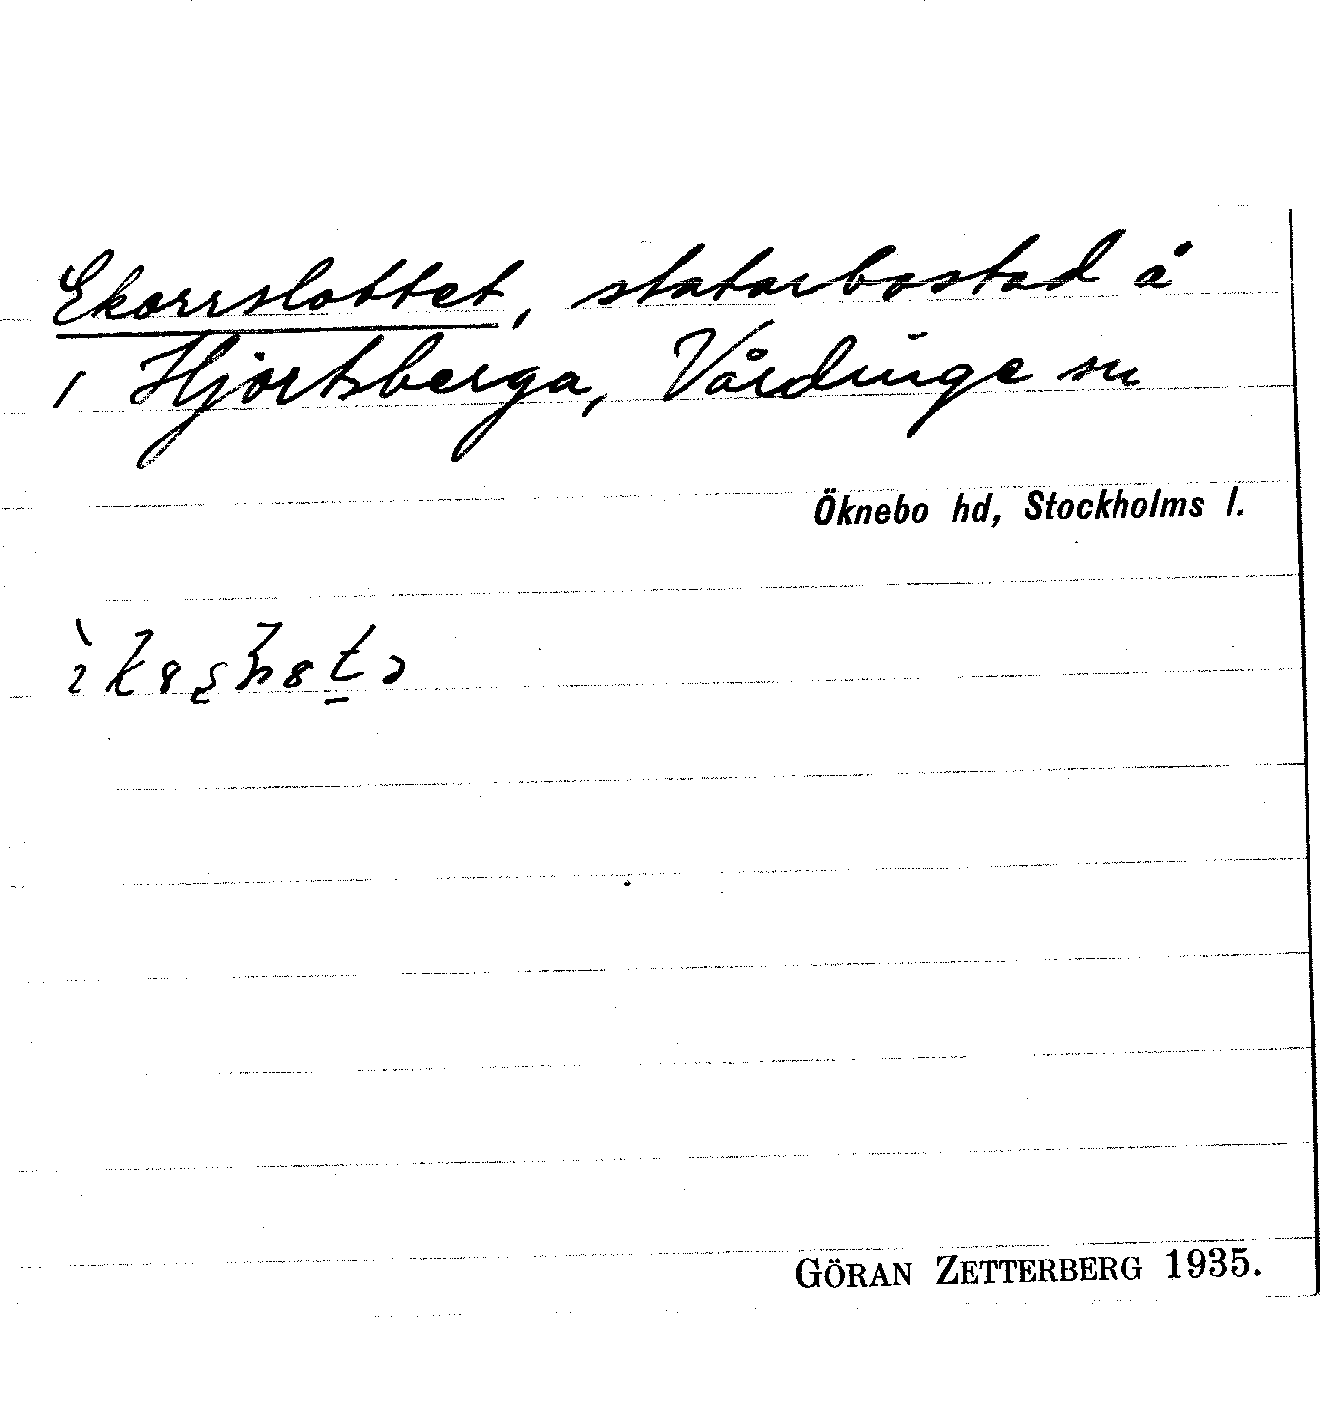 Ekorrslottet, statarbostad å
1 Hjortsberga, Vårdinge sn
Öknebo hd, Stockholms l.
GÖRAN ZETTERBERG 1935.